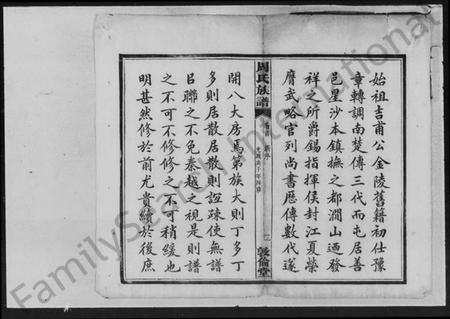 始祖吉甫公金陵舊籍初仕豫
章轉調南楚傳三代而屯居善
邑星沙本鎮撫之都澗山迺發
祥之所爵錫指揮侯封江夏榮
膺武略官列尚書歷傳數代遂
周氏族譜
敦倫堂
開八大房馬第族大則丁多丁
多則居散居散則誼疎使無譜
以聯之不免秦越之視是則譜
之不可不修修之不可稍緩也
明甚然修於前尤貴續於後庶
FamilySearch International